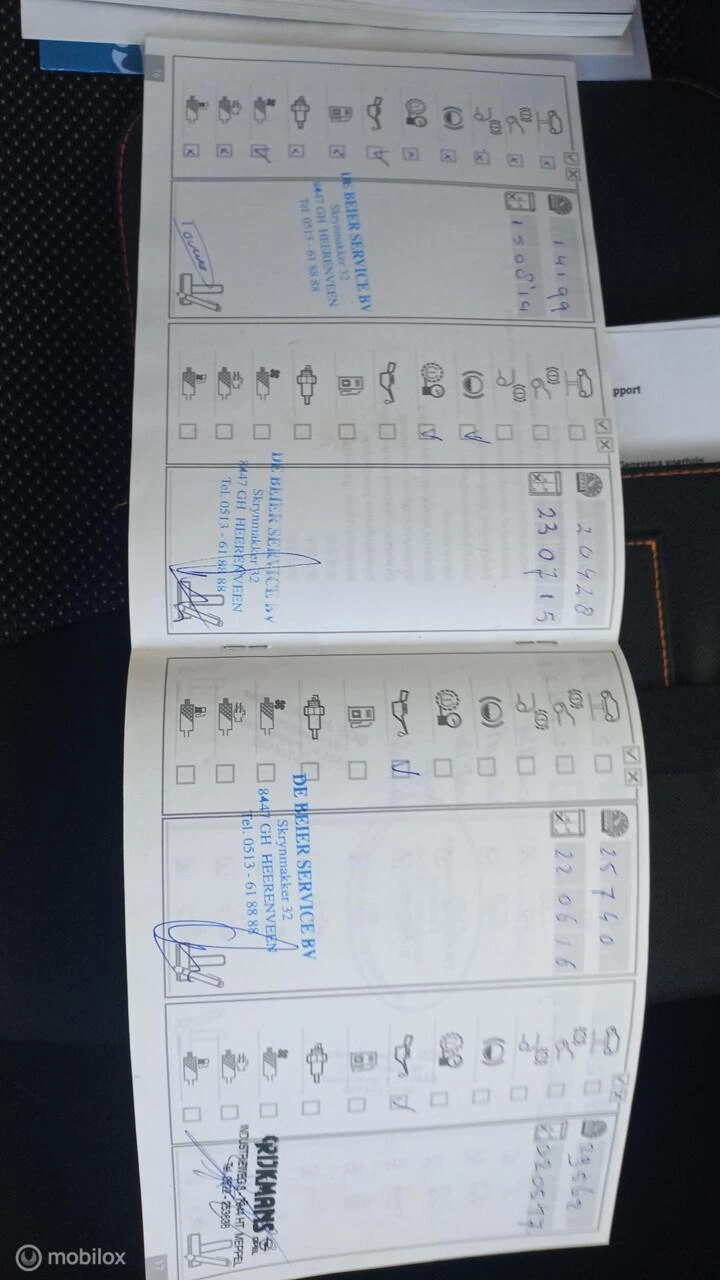 16
14199
150814
DE BEIER SERVICE BV
Skrynmakker 32
8447 GH HEERENVEEN
Tel. 0513 - 61 88 88
20428
230715
DE BEIER SERVICE BV
Skrynmakker 32
8447 GH HEERENVEEN
Tel. 0513 - 61 88 88
25740
220616
DE BEIER SERVICE BV
Skrynmakker 32
8447 GH HEERENVEEN
Tel. 0513 - 61 88 88
29562
020517
INDUSTRIEWEG
7944 HT MEPPEL
17
pport
Gegevens voertuig
mobilox